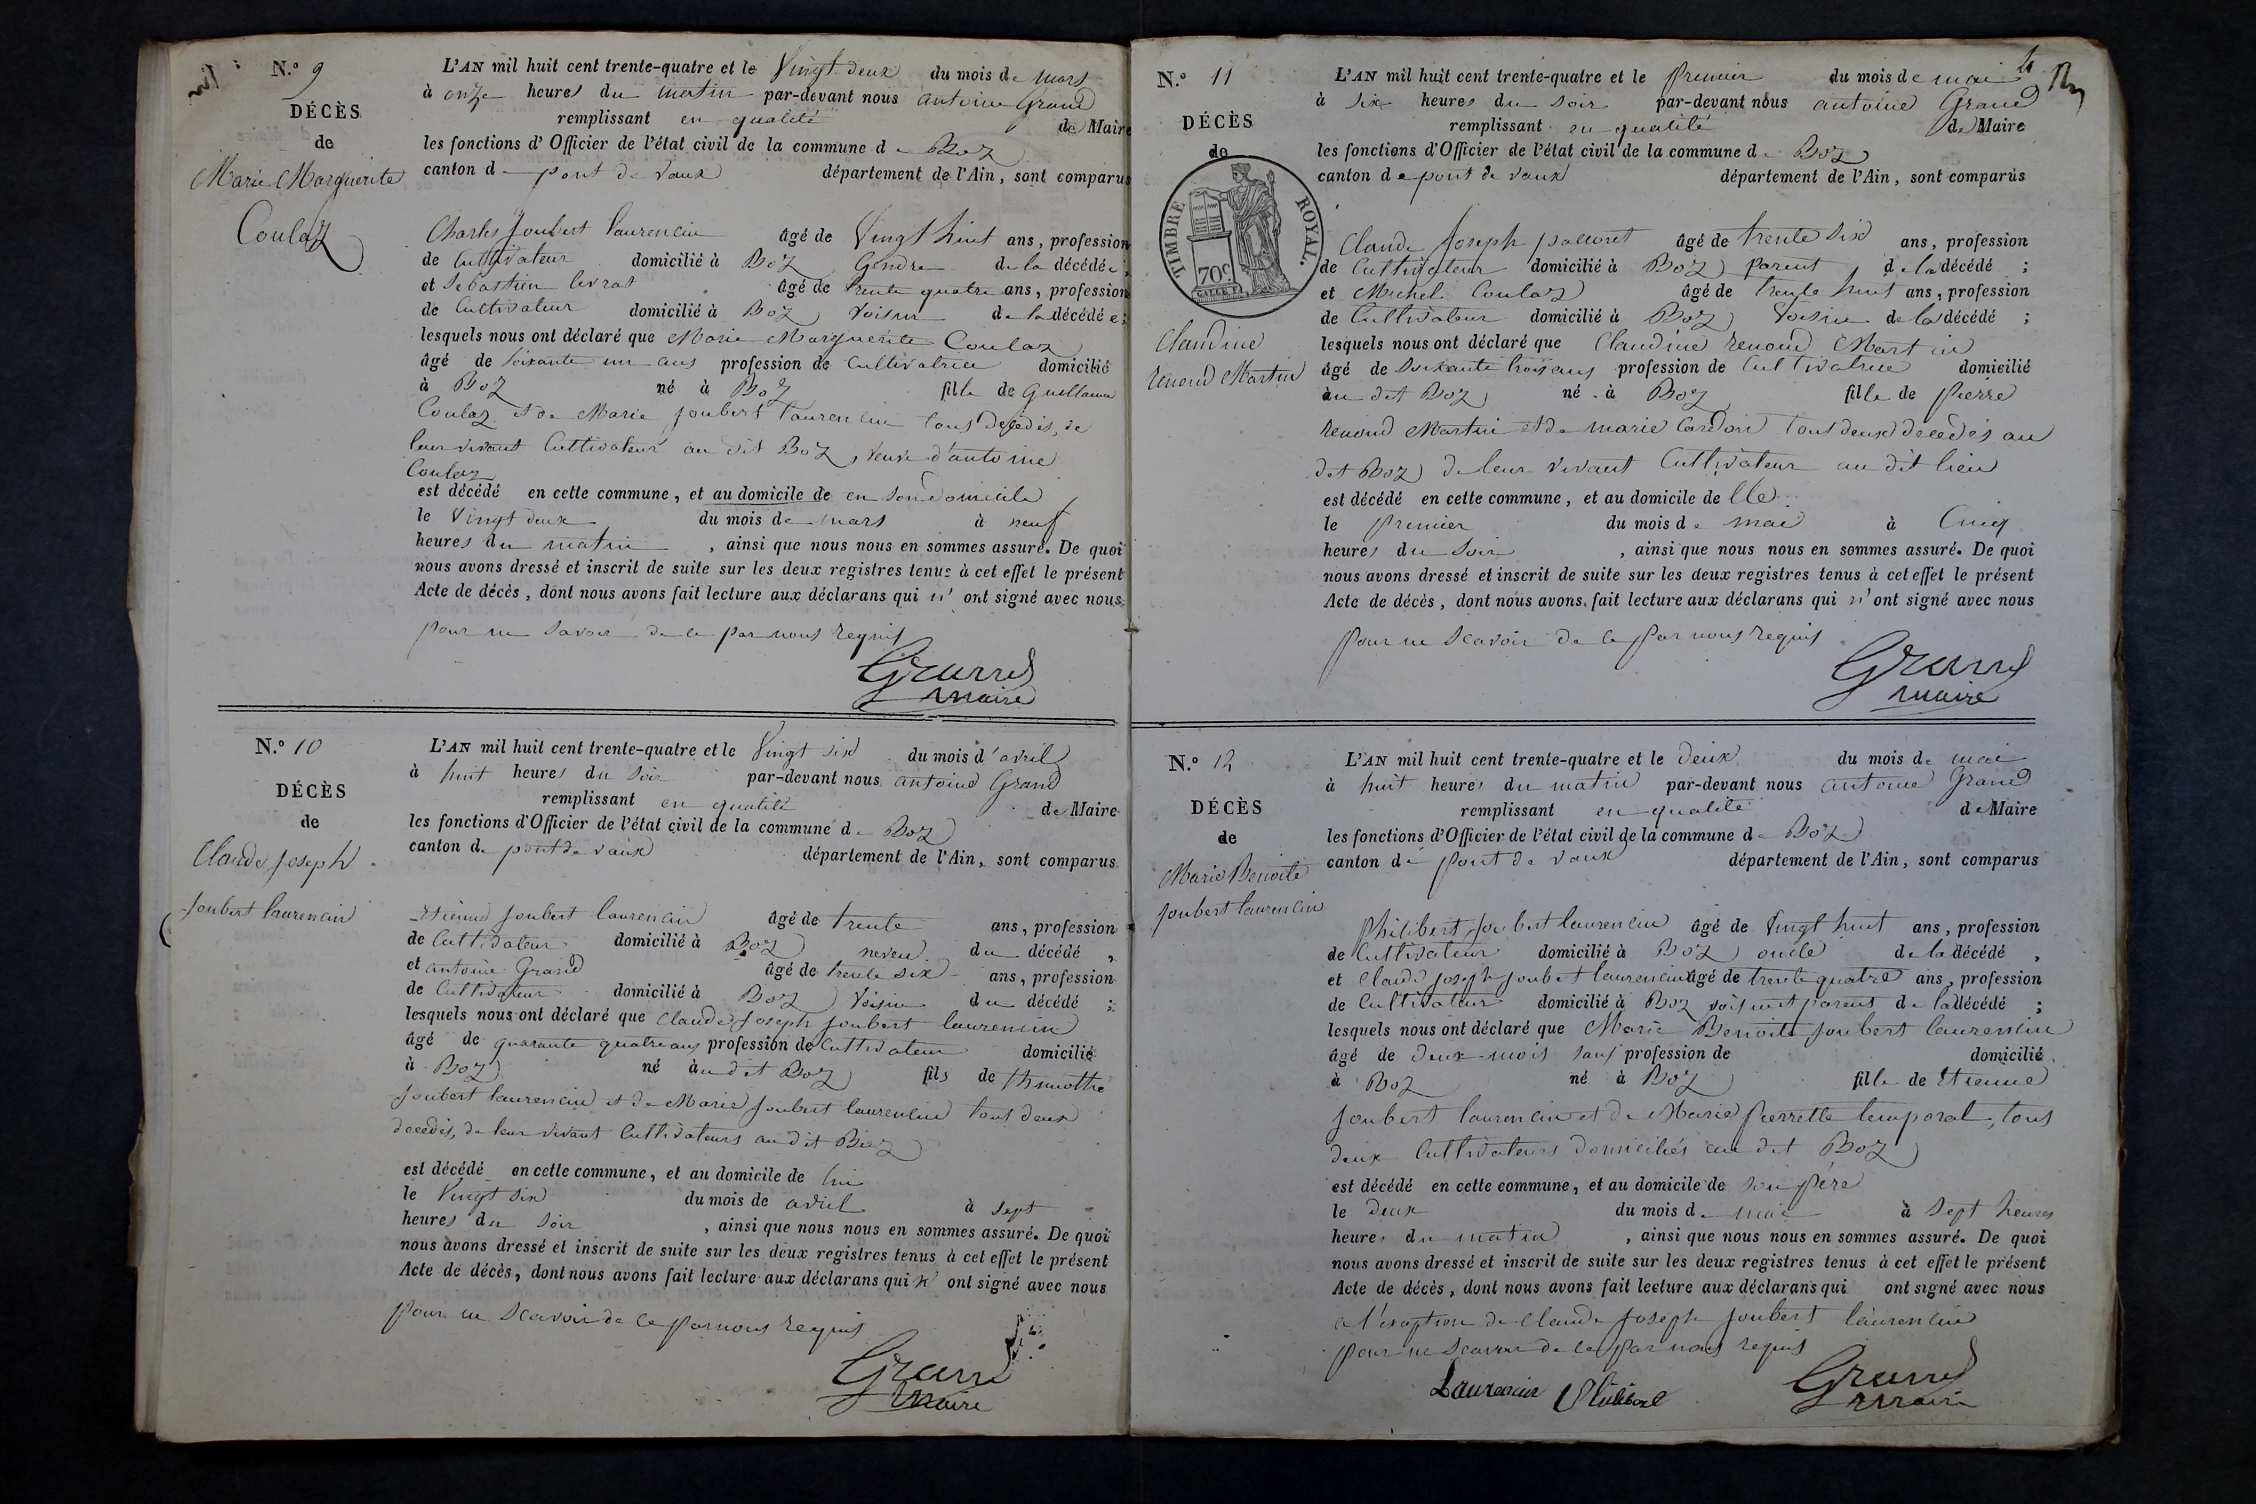 N.° 9
DÉCÈS
de
Marie Marguerite
Coulaz
L'AN mil huit cent trente-quatre et le Vingt deux du mois de mars
à onze heures du matin par-devant nous antoine Grand
remplissant en qualité de Maire
les fonctions d'Officier de l'état civil de la commune de Boz
canton de pont de vaux département de l'Ain, sont comparus
Charles Joubert laurencin âgé de Vingt huit ans, profession
de Cultivateur domicilié à Boz Gendre de la décédée ;
et Sebastien levrat âgé de trente quatre ans, profession
de Cultivateur domicilié à Boz Voisin de la décédée ;
lesquels nous ont déclaré que Marie Marguerite Coulaz
âgé de soixante un ans profession de Cultivatrice domicilié
à Boz né à Boz fille de Guillaume
Coulaz et de Marie Joubert laurencin tous décédés, de
leur vivant Cultivateur au dit Boz, veuve d'antoine
Coulaz
est décédé en cette commune, et au domicile de en son domicile
le Vingt deux du mois de mars à neuf
heures du matin, ainsi que nous nous en sommes assuré. De quoi
nous avons dressé et inscrit de suite sur les deux registres tenus à cet effet le présent
Acte de décès, dont nous avons fait lecture aux déclarans qui n' ont signé avec nous
pour ne savoir de ce par nous requis
Grand
maire
N.° 10
DÉCÈS
de
Claude Joseph
Joubert laurencin
L'AN mil huit cent trente-quatre et le Vingt six du mois d'avril
à huit heures du soir par-devant nous antoine Grand
remplissant en qualité de Maire
les fonctions d'Officier de l'état civil de la commune de Boz
canton de pont de vaux département de l'Ain, sont comparus
Etienne Joubert laurencin âgé de trente ans, profession
de Cultivateur domicilié à Boz neveu du décédé ,
et antoine Grand âgé de trente six ans, profession
de Cultivateur domicilié à Boz Voisin du décédé ;
lesquels nous ont déclaré que Claude Joseph Joubert laurencin
âgé de quarante quatre ans profession de Cultivateur domicilié
à Boz né au dit Boz fils de thimothé
Joubert laurencin et de Marie Joubert laurencin tout deux
decedés, de leur vivant Cultivateurs au dit Boz
est décédé en cette commune, et au domicile de lui
le Vingt six du mois de avril à sept
heures du soir, ainsi que nous nous en sommes assuré. De quoi
nous avons dressé et inscrit de suite sur les deux registres tenus à cet effet le présent
Acte de décès, dont nous avons fait lecture aux déclarans qui n' ont signé avec nous
pour ne scavoir de ce par nous requis
Grand
maire
4
N.° 11
DÉCÈS
de
TIMBRE ROYAL.
70c
Claudine
renoud Martin
L'AN mil huit cent trente-quatre et le premier du mois de mai
à six heures du soir par-devant nous antoine Grand
remplissant en qualité de Maire
les fonctions d'Officier de l'état civil de la commune de Boz
canton de pont de vaux département de l'Ain, sont comparus
Claude Joseph âgé de trente six ans, profession
de Cultivateur domicilié à Boz parent de la décédé ;
et Michel Coulaz âgé de trente huit ans, profession
de Cultivateur domicilié à Boz Voisin de la décédé ;
lesquels nous ont déclaré que Claudine renoud Martin
âgé de Soixante trois ans profession de Cultivatrice domicilié
au dit Boz né à Boz fille de pierre
renoud Martin et de marie Cardon tout deux decedés au
dit Boz de leur vivant Cultivateur au dit lieu
est décédé en cette commune, et au domicile de Elle
le premier du mois de mai à Cinq
heures du soir, ainsi que nous nous en sommes assuré. De quoi
nous avons dressé et inscrit de suite sur les deux registres tenus à cet effet le présent
Acte de décès, dont nous avons fait lecture aux déclarans qui n' ont signé avec nous
pour ne scavoir de ce par nous requis
Grand
maire
N.° 12
DÉCÈS
de
Marie Benoite
Joubert laurencin
L'AN mil huit cent trente-quatre et le deux du mois de mai
à huit heures du matin par-devant nous antoine Grand
remplissant en qualité de Maire
les fonctions d'Officier de l'état civil de la commune de Boz
canton de pont de vaux département de l'Ain, sont comparus
Philibert Joubert laurencin âgé de Vingt huit ans, profession
de Cultivateur domicilié à Boz oncle de la décédé ,
et Claude Joseph Joubert laurencin âgé de trente quatre ans, profession
de Cultivateur domicilié à Boz voisin et parent de la décédé ;
lesquels nous ont déclaré que Marie Benoite Joubert laurencin
âgé de deux mois sans profession de domicilié
à Boz né à Boz fille de Etienne
Joubert laurencin et de Marie pierrette temporal, tous
deux Cultivateurs domiciliés au dit Boz
est décédé en cette commune, et au domicile de son père
le deux du mois de mai à sept heures
heures du matin, ainsi que nous nous en sommes assuré. De quoi
nous avons dressé et inscrit de suite sur les deux registres tenus à cet effet le présent
Acte de décès, dont nous avons fait lecture aux déclarans qui ont signé avec nous
a l'exception de Claude Joseph Joubert laurencin
pour ne scavoir de ce par nous requis
Laurencin Philibert
Grand
maire